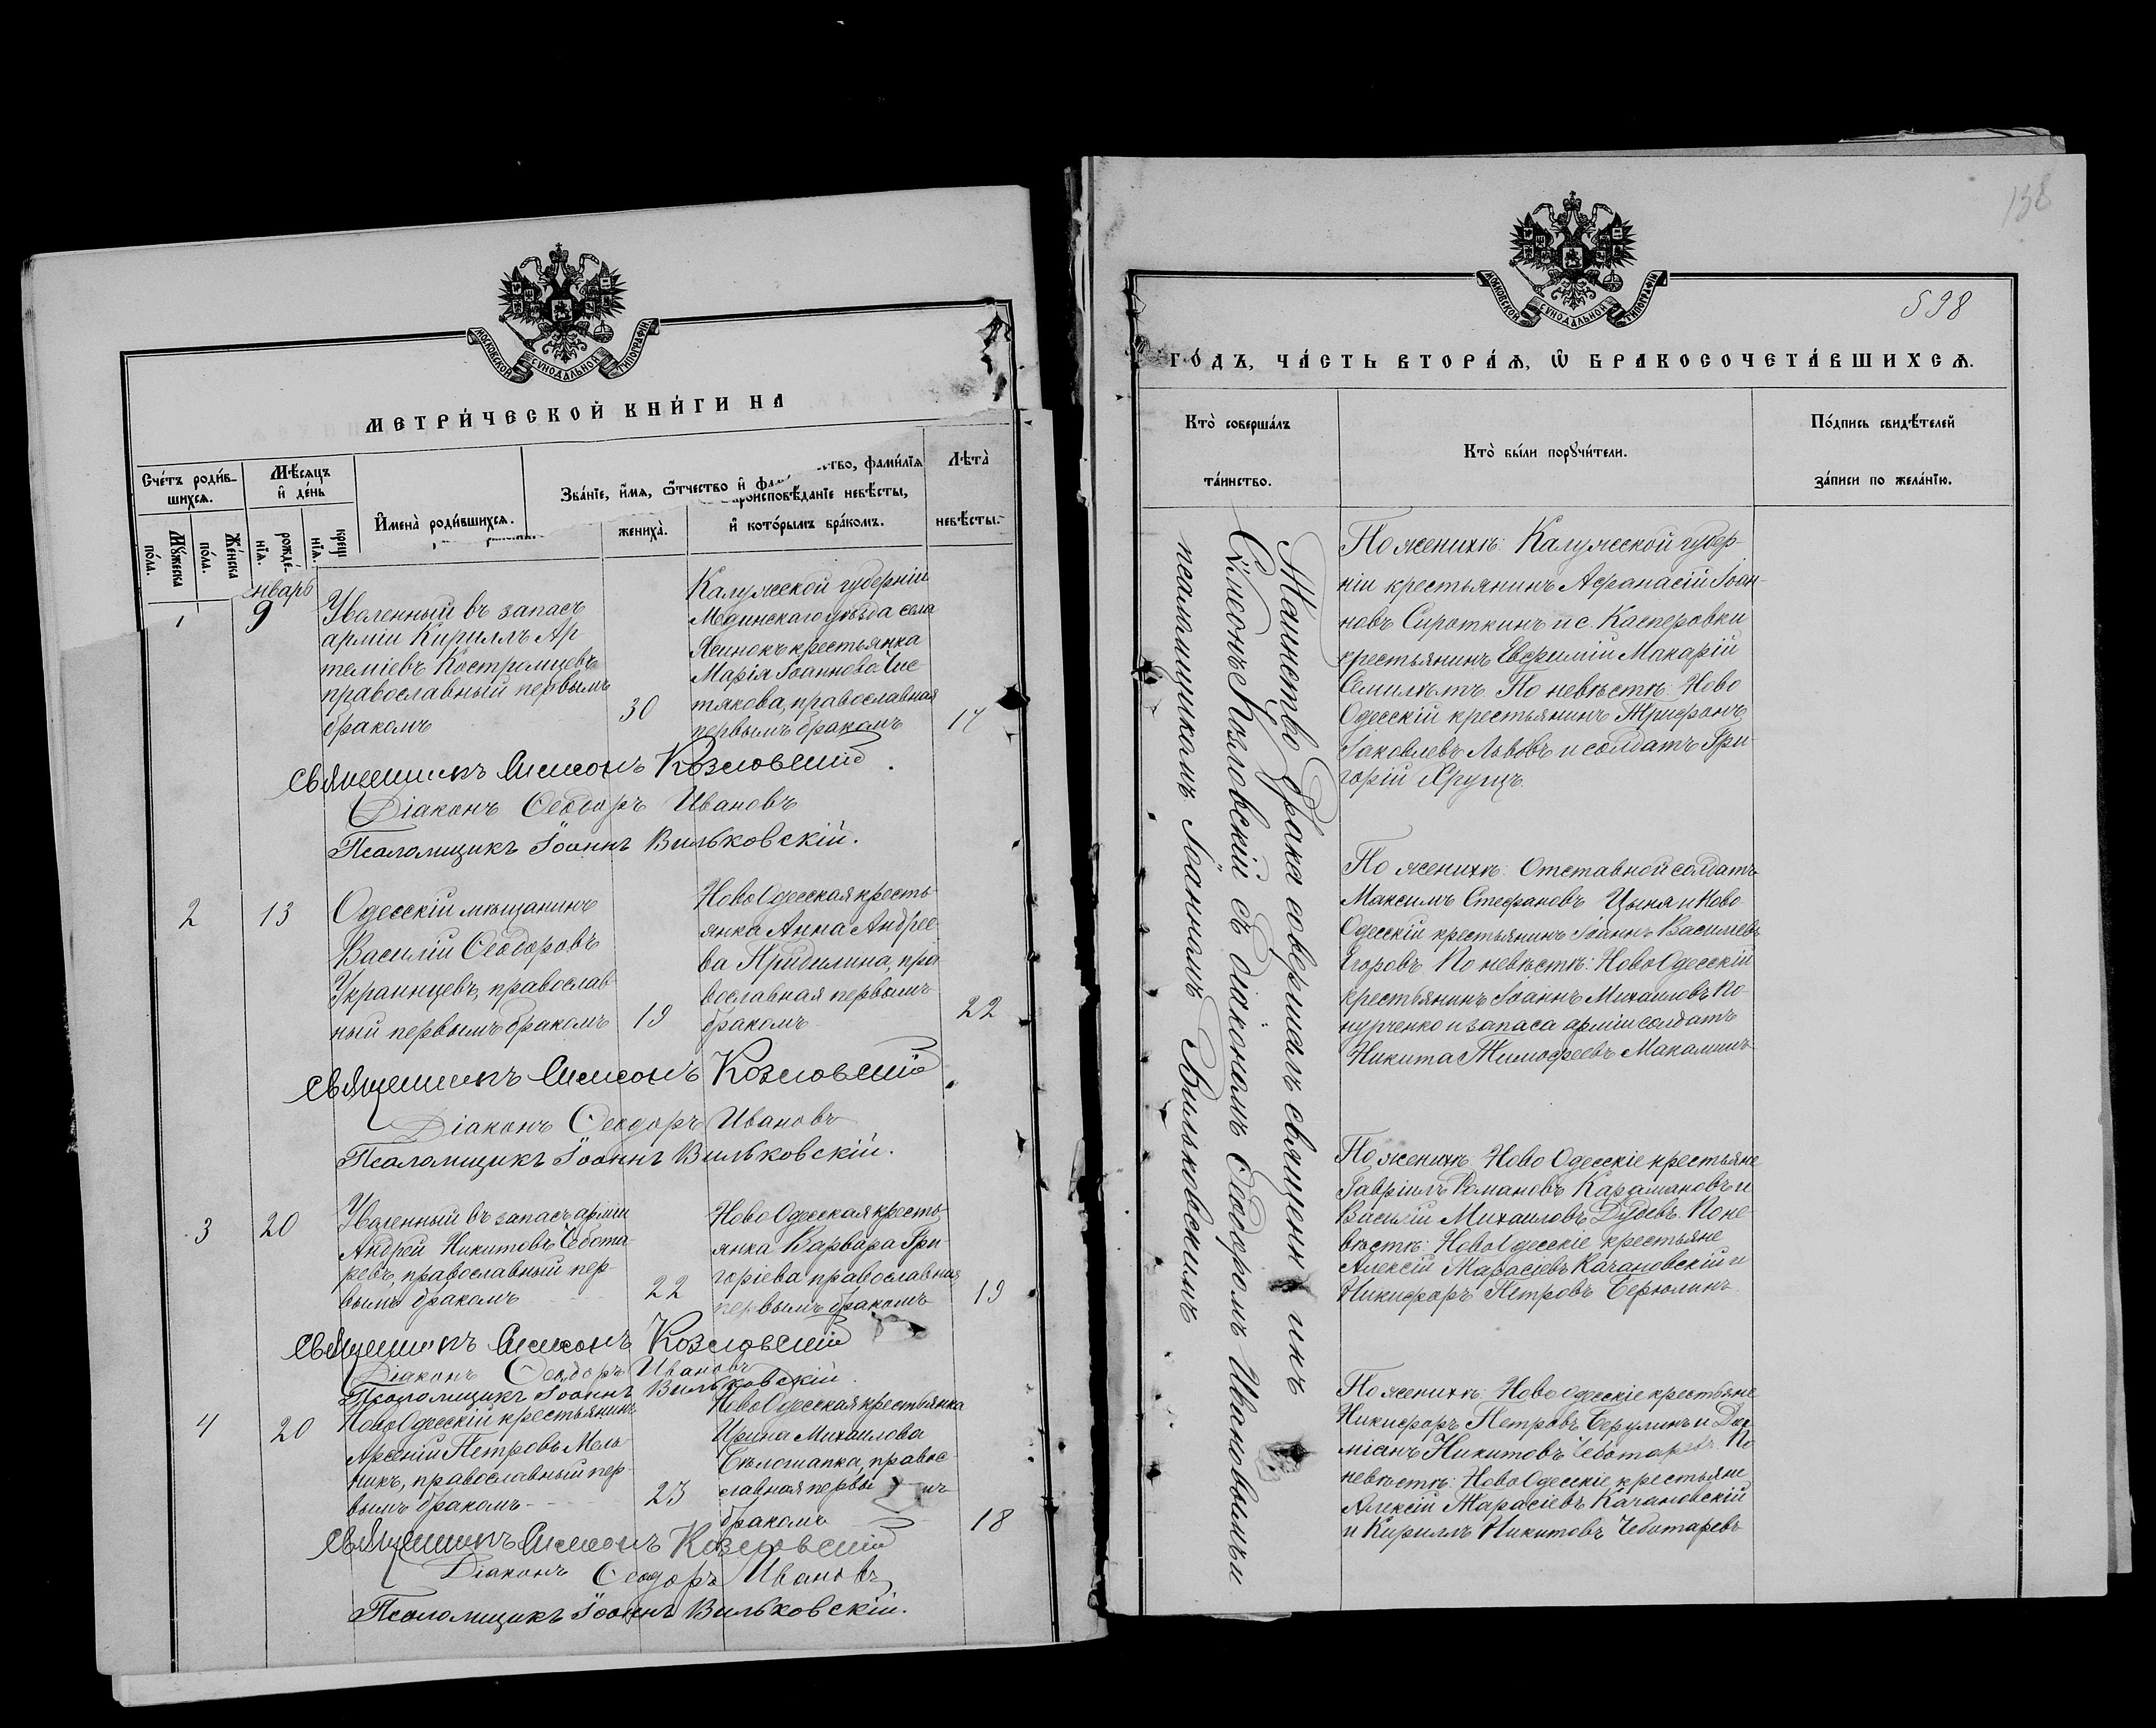 МОСКОВСКОЙ СѴНОДАЛЬНОЙ ТИПОГРАФІИ
МЕТРИ́ЧЕСКОЙ КНИ́ГИ НА
Сче́тъ роди́в-
шихсѧ.
Мѣ́сѧцъ
и҆ де́нь
И҆мена̀ роди́вшихсѧ.
Зва́нїе, и҆́мѧ, ѻ҆́тчество и҆ фам
ство, фами́лїѧ
роисповѣ́данїе невѣ́сты,
и҆ кото́рымъ бра́комъ.
Лѣта̀
невѣ́сты.
жениха̀.
Мꙋ́жеска
по́ла.
Же́нска
по́ла.
рожде́-
нїѧ.
креще
нїѧ.
нварь
1
9
Уволенный въ запасъ
арміи Кириллъ Ар
теміевъ Костромцевъ
православный первымъ
бракомъ
30
Калужской губерніи
Мединскаго уѣзда села
крестьянка
Марія Іоаннова Чис
тякова, православная
первымъ бракомъ
17
Священникъ Симеонъ Козловскій
Діаконъ Ѳеодоръ Ивановъ
Псаломщикъ Іоаннъ Вильковскій.
2
13
Одесскій мѣщанинъ
Василій Ѳеодоровъ
Украинцевъ, православ
ный первымъ бракомъ
19
Ново Одесская кресть
янка Анна Андрее
ва Придилина, пра
вославная первымъ
бракомъ
22
Священникъ Симеонъ Козловскій
Діаконъ Ѳеодоръ Ивановъ
Псаломщикъ Іоаннъ Вильковскій.
3
20
Уволенный въ запасъ арміи
Андрей Никитовъ Чебота
ревъ, православный пер
вымъ бракомъ
22
Ново Одесская кресть
янка Варвара Гри
горіева православная
первымъ бракомъ
19
Священникъ Симеонъ Козловскій
Діаконъ Ѳеодоръ Ивановъ
Псаломщикъ Іоаннъ Вильковскій.
4
20
Ново Одесскій крестьянинъ
Арсеній Петровъ Мель
никъ, православный пер
вымъ бракомъ
23
Ново Одесская крестьянка
Ирина Михаилова
Бѣлошапка, правос
славная первы мъ
бракомъ
18
Священникъ Симеонъ Козловскій
Діаконъ Ѳеодоръ Ивановъ
Псаломщикъ Іоаннъ Вильковскій.
138
МОСКОВСКОЙ СѴНОДАЛЬНОЙ ТИПОГРАФІИ
598
ГО́ДЪ, ЧА́СТЬ ВТОРА́Ѧ, Ѽ БРАКОСОЧЕТА́ВШИХСѦ.
Кто̀ соверша́лъ
та́инство.
Кто̀ бы́ли порꙋчи́тели.
По́дпись свидѣ́телей
за́писи по жела́нїю.
Таинство брака совершалъ священн икъ
Симеонъ Козловскій съ діакономъ Ѳеодоромъ Ивановымъ и
псаломщикомъ Іоанномъ Вильковскимъ
По женихѣ: Калужской губер-
ніи крестьянинъ Афанасій Іоан-
новъ Сироткинъ и с. Касперовки
крестьянинъ Евфимій Макарій
По невѣстѣ: Ново
Одесскій крестьянинъ Трифонъ
Іаковлевъ Львовъ и солдатъ Гри-
горій Хрущъ.
По женихѣ: Отставной солдатъ
Максимъ Стефановъ Цыня и Ново
Одесскій крестьянинъ Іоаннъ Василіевъ
Егоровъ. По невѣстѣ: Ново Одесскій
крестьянинъ Іоаннъ Михаиловъ По-
нурченко и запаса арміи солдатъ
Никита Тимофеевъ Макаминъ
По женихѣ: Ново Одесскіе крестьяне
Гавріилъ Романовъ Карамановъ и
Василій Михаиловъ Дудевъ. По не-
вѣстѣ: Ново Одесскіе крестьяне
Алексій Тарасіевъ Качановскій и
Никифоръ Петровъ Берюлинъ
По женихѣ: Ново Одесскіе крестьяне
Никифоръ Петровъ Берулинъ и Да-
міанъ Никитовъ Чеботаревъ. По
невѣстѣ: Ново Одесскіе крестьяне
Алексій Тарасіевъ Качановскій
и Кириллъ Никитовъ Чеботаревъ